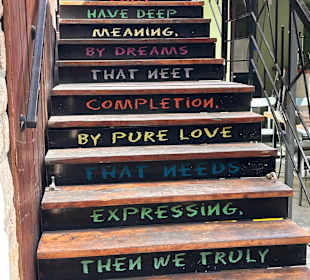 HAVE DEEP
MEANING,
BY DREAMS
THAT NEET
COMPLETION,
BY PURE LOVE
THAT NEEDS
EXPRESSING,
THEN WE TRULY